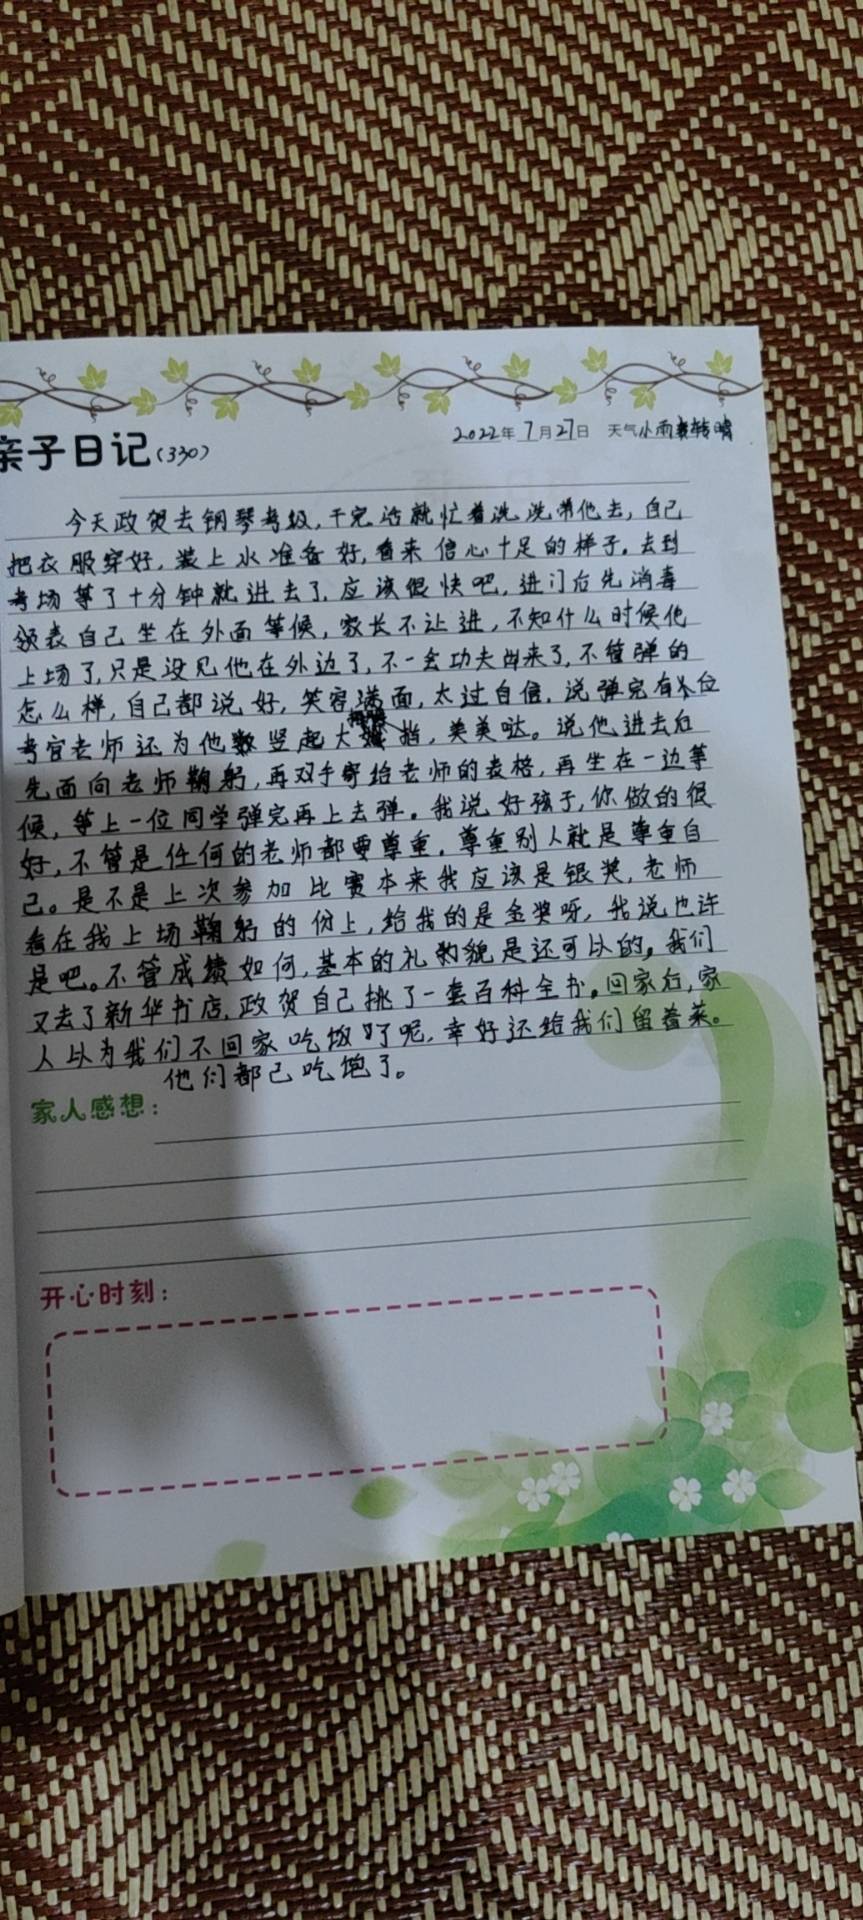 亲子日记(330)
2022年7月27日 天气小雨转晴
今天政贺去钢琴考级,干完活就忙着洗洗带他去,自己
把衣服穿好,装上水准备好,看来信心十足的样子。去到
考场等了十分钟就进去了,应该很快吧,进门后先消毒
领表自己坐在外面等候,家长不让进,不知什么时候他
上场了,只是没见他在外边了,不一会功夫出来了,不管弹的
怎么样,自己都说好,笑容满面,太过自信,说弹完有个位
考官老师还为他竖起大拇指,美美哒。说他进去后
先面向老师鞠躬,再双手寄给老师的表格,再坐在一边等
候,等上一位同学弹完再上去弹。我说好孩子,你做的很
好,不管是任何的老师都要尊重,尊重别人就是尊重自
己。是不是上次参加比赛本来我应该是银奖,老师
看在我上场鞠躬的份上,给我的是金奖呀,我说也许
是吧。不管成绩如何,基本的礼貌是还可以的,我们
又去了新华书店,政贺自己挑了一套百科全书。回家后,家
人以为我们不回家吃饭了呢,幸好还给我们留着菜。
他们都己吃饱了。
家人感想:
开心时刻: